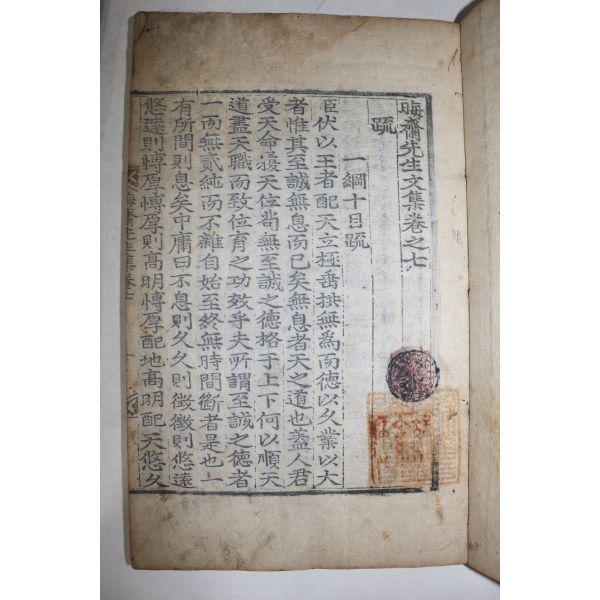 晦齋先生文集卷之七
疏
一綱十目疏
臣伏以王者配天立極垂拱無爲而德以久業以大
者惟其至誠無息而已矣無息者天之道也蓋人君
受天命履天位尚無至誠之德格于上下何以順天
道盡天職而致位育之功效乎夫所謂至誠之德者
一而無貳純而不雜自始至終無時間斷者是也一
有所間則息矣中庸曰不息則久久則徵徵則悠遠
悠遠則博厚博厚則高明博厚配地高明配天悠久
晦齋先生集卷七